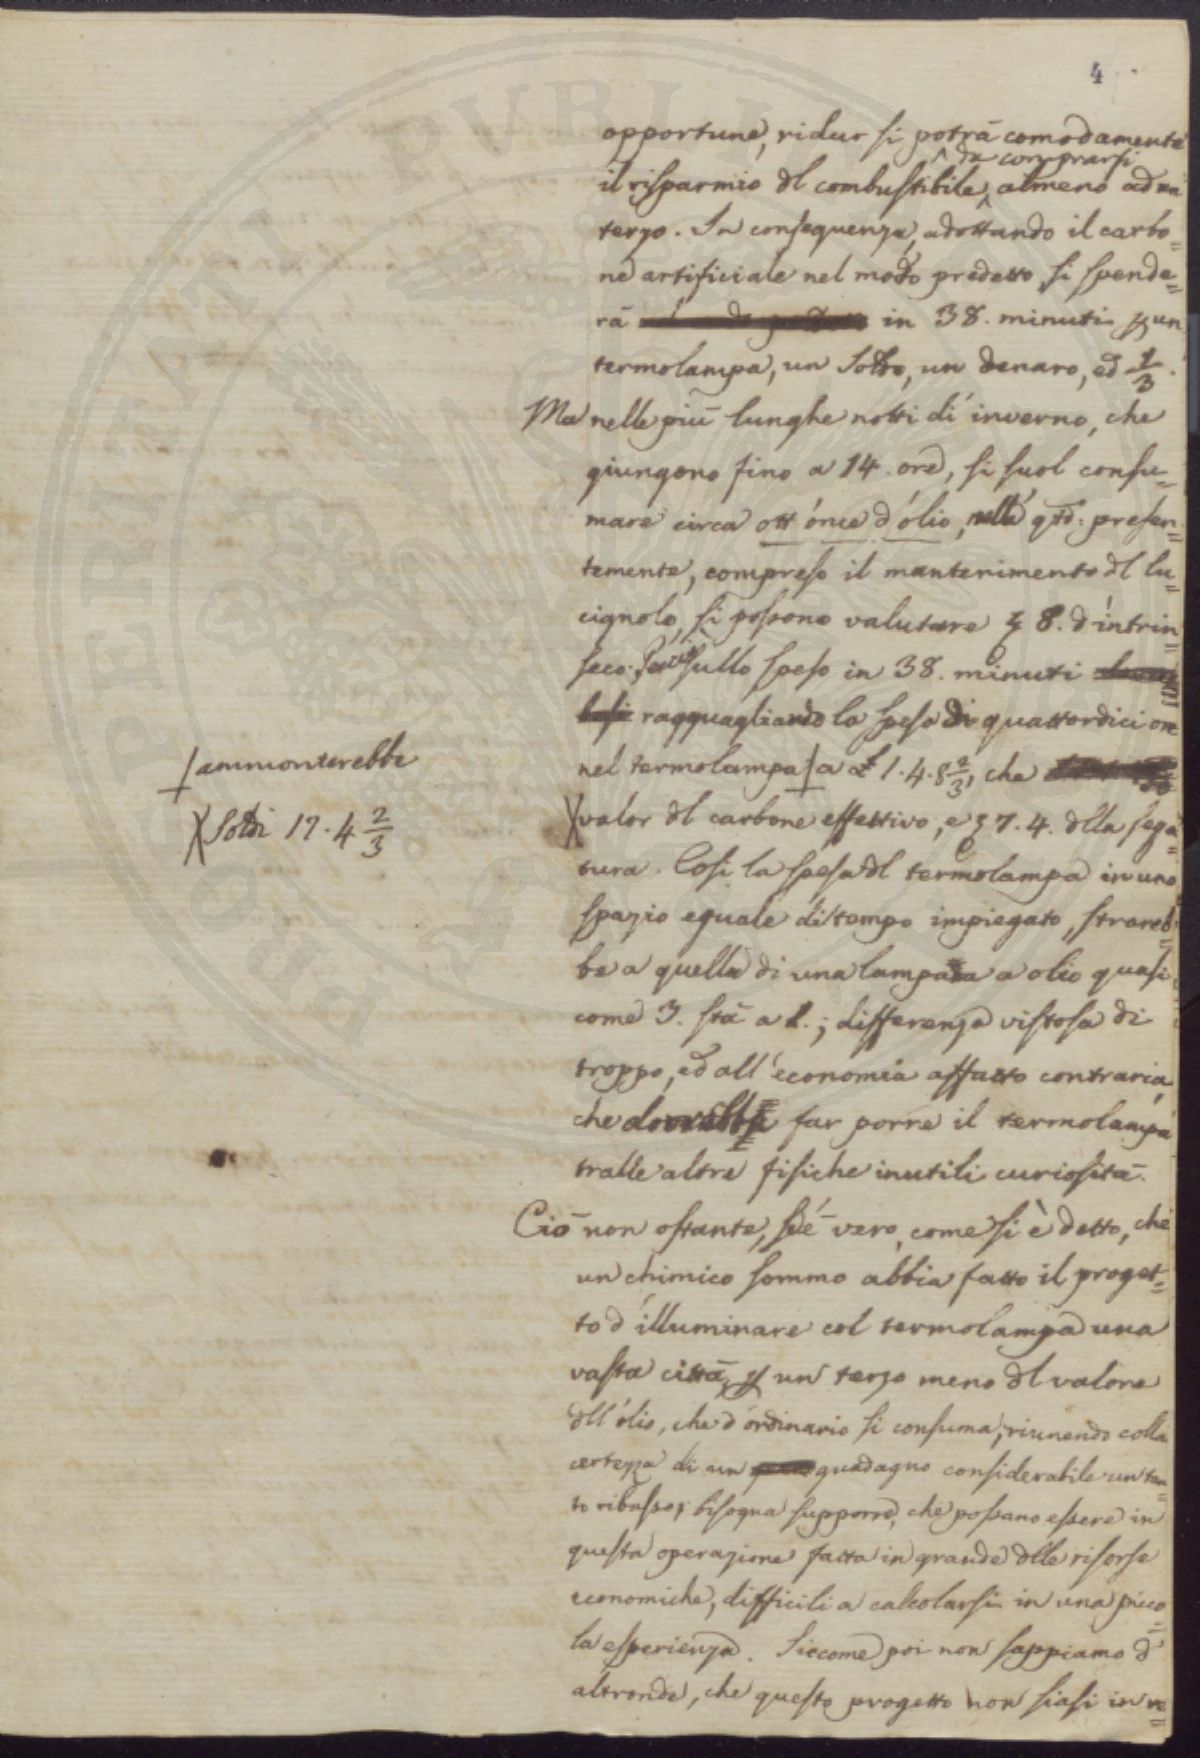 4
opportune, ridur si potrà comodamente
da comprarsi
il risparmio dl combustibile, almeno ad un
terzo. In conseguenza, adottando il carbo=
ne artificiale nel modo predetto, si spende=
rà in 38. minuti p un
termolampa, un Soldo, un denaro, ed 1/3.
Ma nelle più lunghe notti di inverno, che
giungono fino a 14. ore, si suol consu=
mare circa ott'once d'olio, nella qtà: presen=
temente, compreso il mantenimento dl lu=
cignolo, si possono valutare ʒ 8. d'intrin=
seco. Perciò sullo speso in 38. minuti
ragguagliando la spesa di quattordici ore
nel termolampa a £ 1.4.8 2/3, che
ammonterebbe
Soldi 17.4 2/3
valor dl carbone effettivo, e ʒ 7.4. dlla sega=
tura. Così la spesa dl termolampa in uno
spazio eguale di tempo impiegato, starebbe
be a quella di una lampada a olio quasi
come 3. stà a 1.; differenza vistosa di
troppo, ed all'economia affatto contraria,
che dovrebbe far porre il termolampa
tralle altre fisiche inutili curiosità.
Ciò non ostante, se è vero, come si è detto, che
un chimico sommo abbia fatto il proget=
to d'illuminare col termolampa una
vasta città, p un terzo meno dl valore
dll'olio, che d'ordinario si consuma, riunendo colla
certezza di un guadagno considerabile un tan=
to ribasso; bisogna supporre, che possano essere in
questa operazione fatta in grande dlle risorse
economiche, difficili a calcolarsi in una picco=
la esperienza. Siccome poi non sappiamo d'
altronde, che questo progetto non siasi in ve=